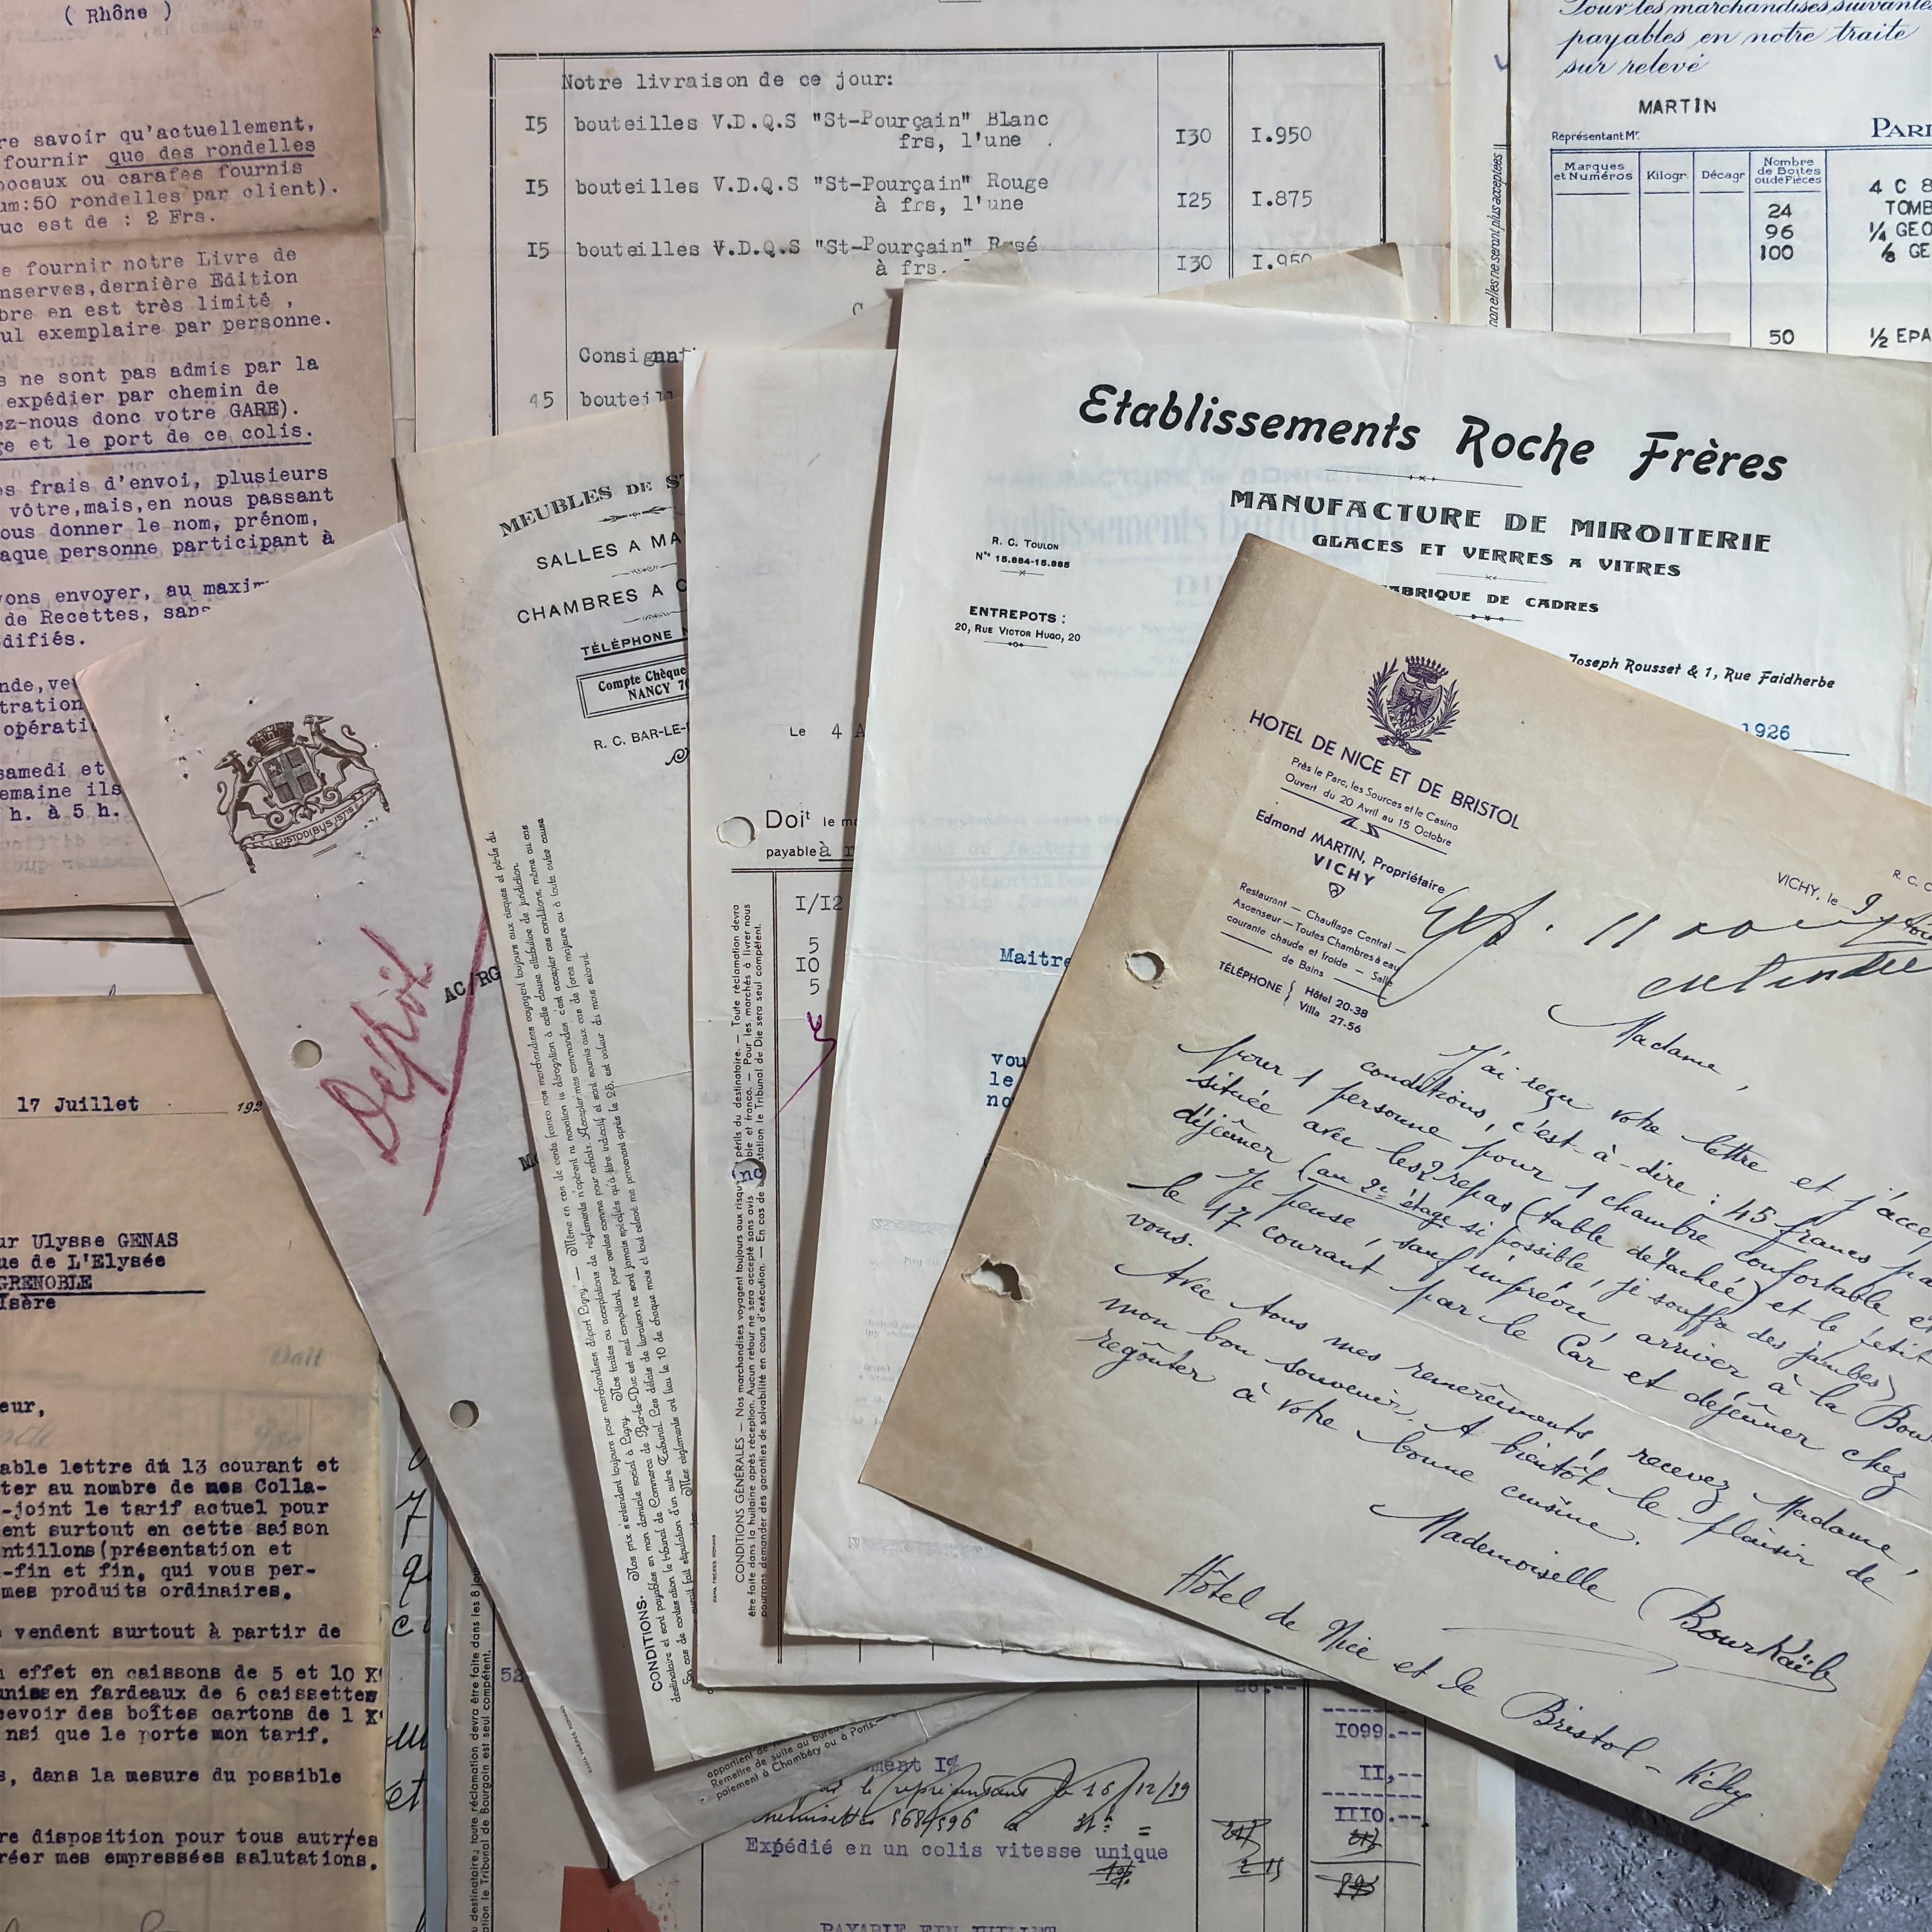 ( Rhône )
re savoir qu'actuellement,
fournir que des rondelles
bocaux ou carafes fournis
um:50 rondelles par client).
uc est de : 2 Frs.
e fournir notre Livre de
nserves,dernière Edition
bre en est très limité ,
ul exemplaire par personne.
s ne sont pas admis par la
expédier par chemin de
ez-nous donc votre GARE).
re et le port de ce colis.
es frais d'envoi, plusieurs
vôtre,mais,en nous passant
ous donner le nom, prénom,
aque personne participant à
vons envoyer, au maxim
de Recettes, sans
difiés.
nde,ve
tration
opérati
samedi et
emaine ils
h. à 5 h.
Notre livraison de ce jour:
I5 bouteilles V.D.Q.S "St-Pourçain" Blanc
frs, l'une . I30 I.950
I5 bouteilles V.D.Q.S "St-Pourçain" Rouge
à frs, l'une I25 I.875
I5 bouteilles V.D.Q.S "St-Pourçain" Rosé
à frs. I30 I.950
Consignat
45 bouteill
Pour les marchandises suivantes
payables en notre traite
sur relevé
MARTIN
Représentant Mr. PARI
Marques et Numéros Kilogr. Décagr. Nombre de Boîtes ou de Pièces
4 C 8
24 TOMB
96 ¼ GEO
100 ⅛ GE
50 ½ EPA
non elles ne seront plus acceptées
Etablissements Roche Frères
MANUFACTURE DE MIROITERIE
GLACES ET VERRES A VITRES
ABRIQUE DE CADRES
R. C. TOULON
Nos 15.884-15.885
ENTREPOTS :
20, RUE VICTOR HUGO, 20
Joseph Rousset & 1, Rue Faidherbe
1926
Maitre
vou
le
no
MEUBLES DE ST
SALLES A MA
CHAMBRES A C
TÉLÉPHONE N
Compte Chèque
NANCY 70
R. C. BAR-LE-
CUSTODIBUS ISTIS
Dépôt
AC/RG
Le 4 A
Doit le m
payable à
I/I2
5
IO
5
HOTEL DE NICE ET DE BRISTOL
Près le Parc, les Sources et le Casino
Ouvert du 20 Avril au 15 Octobre
Edmond MARTIN, Propriétaire
VICHY
Restaurant — Chauffage Central —
Ascenseur — Toutes Chambres à eau
courante chaude et froide — Salle
de Bains —
TÉLÉPHONE { Hôtel 20-38
Villa 27-56
R. C. C
VICHY, le 9
entendu
Madame,
J'ai reçu votre lettre et j'accep
conditions, c'est-à-dire : 45 francs pa
pour 1 personne pour 1 chambre confortable et
située avec les 2 repas (table détaché) et le petit
déjeuner (au 2e étage si possible, je souffre des jambes)
Je pense, sauf imprévu, arriver à la Bour
le 17 courant par le Car et déjeuner chez
vous.
Avec tous mes remerciements, recevez Madame,
mon bon souvenir. A bientôt le plaisir de
regoûter à votre bonne cuisine.
Mademoiselle Bourkaïb
Hôtel de Nice et de Bristol - Vichy
17 Juillet 192
ur Ulysse GENAS
ue de L'Elysée
GRENOBLE
Isère
eur,
able lettre du 13 courant et
ter au nombre de mes Colla-
-joint le tarif actuel pour
ent surtout en cette saison
ntillons(présentation et
-fin et fin, qui vous per-
mes produits ordinaires.
vendent surtout à partir de
n effet en caissons de 5 et 10 K
unis en fardeaux de 6 caissettes
cevoir des boîtes cartons de 1 K
nsi que le porte mon tarif.
s, dans la mesure du possible
re disposition pour tous autres
réer mes empressées salutations.
CONDITIONS.
CONDITIONS GÉNÉRALES — Nos marchandises voyagent toujours aux risques et périls du destinataire. — Toute réclamation devra
être faite dans la huitaine après réception. Aucun retour ne sera accepté sans avis
pourrons demander des garanties de solvabilité en cours d'exécution. — En cas de
destinataire; toute réclamation devra être faite dans les 8 jou
ation le Tribunal de Bourgoin est seul compétent.
appartient de
Remettre de suite au bureau
paiement à Chambéry ou à Paris.
52
I099.--
ment I%
II,--
III0.--
Expédié en un colis vitesse unique
PAYABLE FIN JUILLET